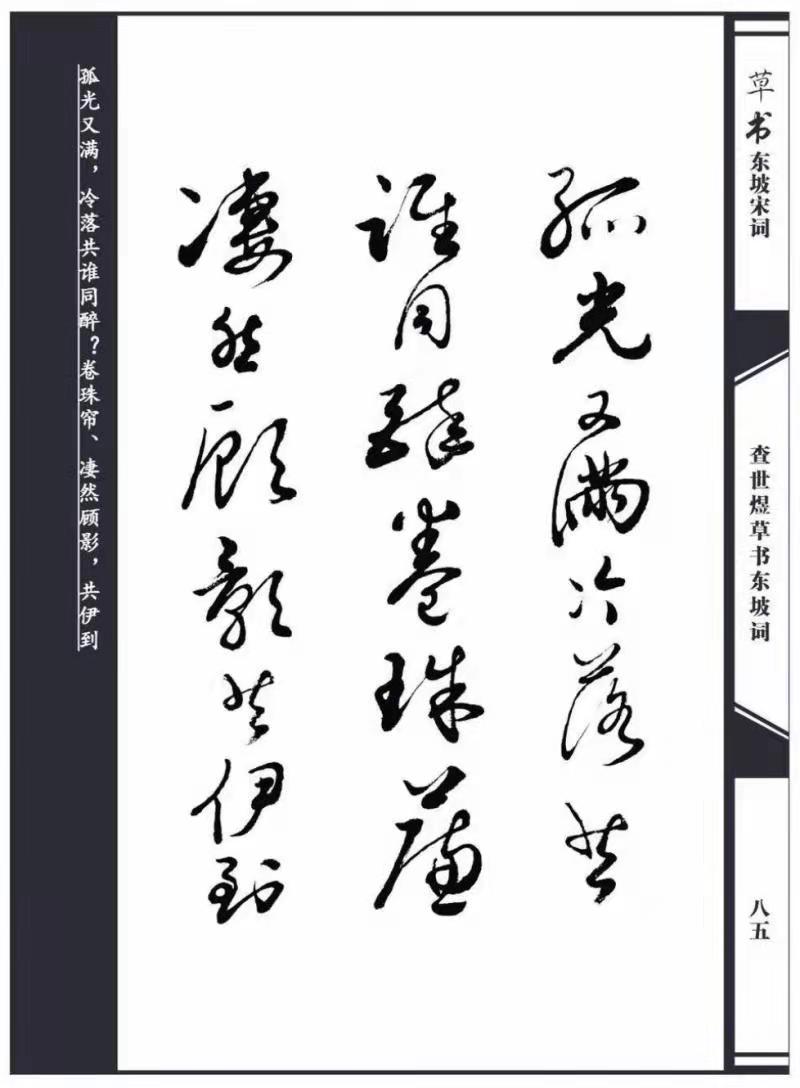 草书东坡宋词
查世煜草书东坡词
八五
孤光又滿冷落共
誰同醉卷珠簾
凄然顧影共伊到
孤光又满，冷落共谁同醉？卷珠帘、凄然顾影，共伊到